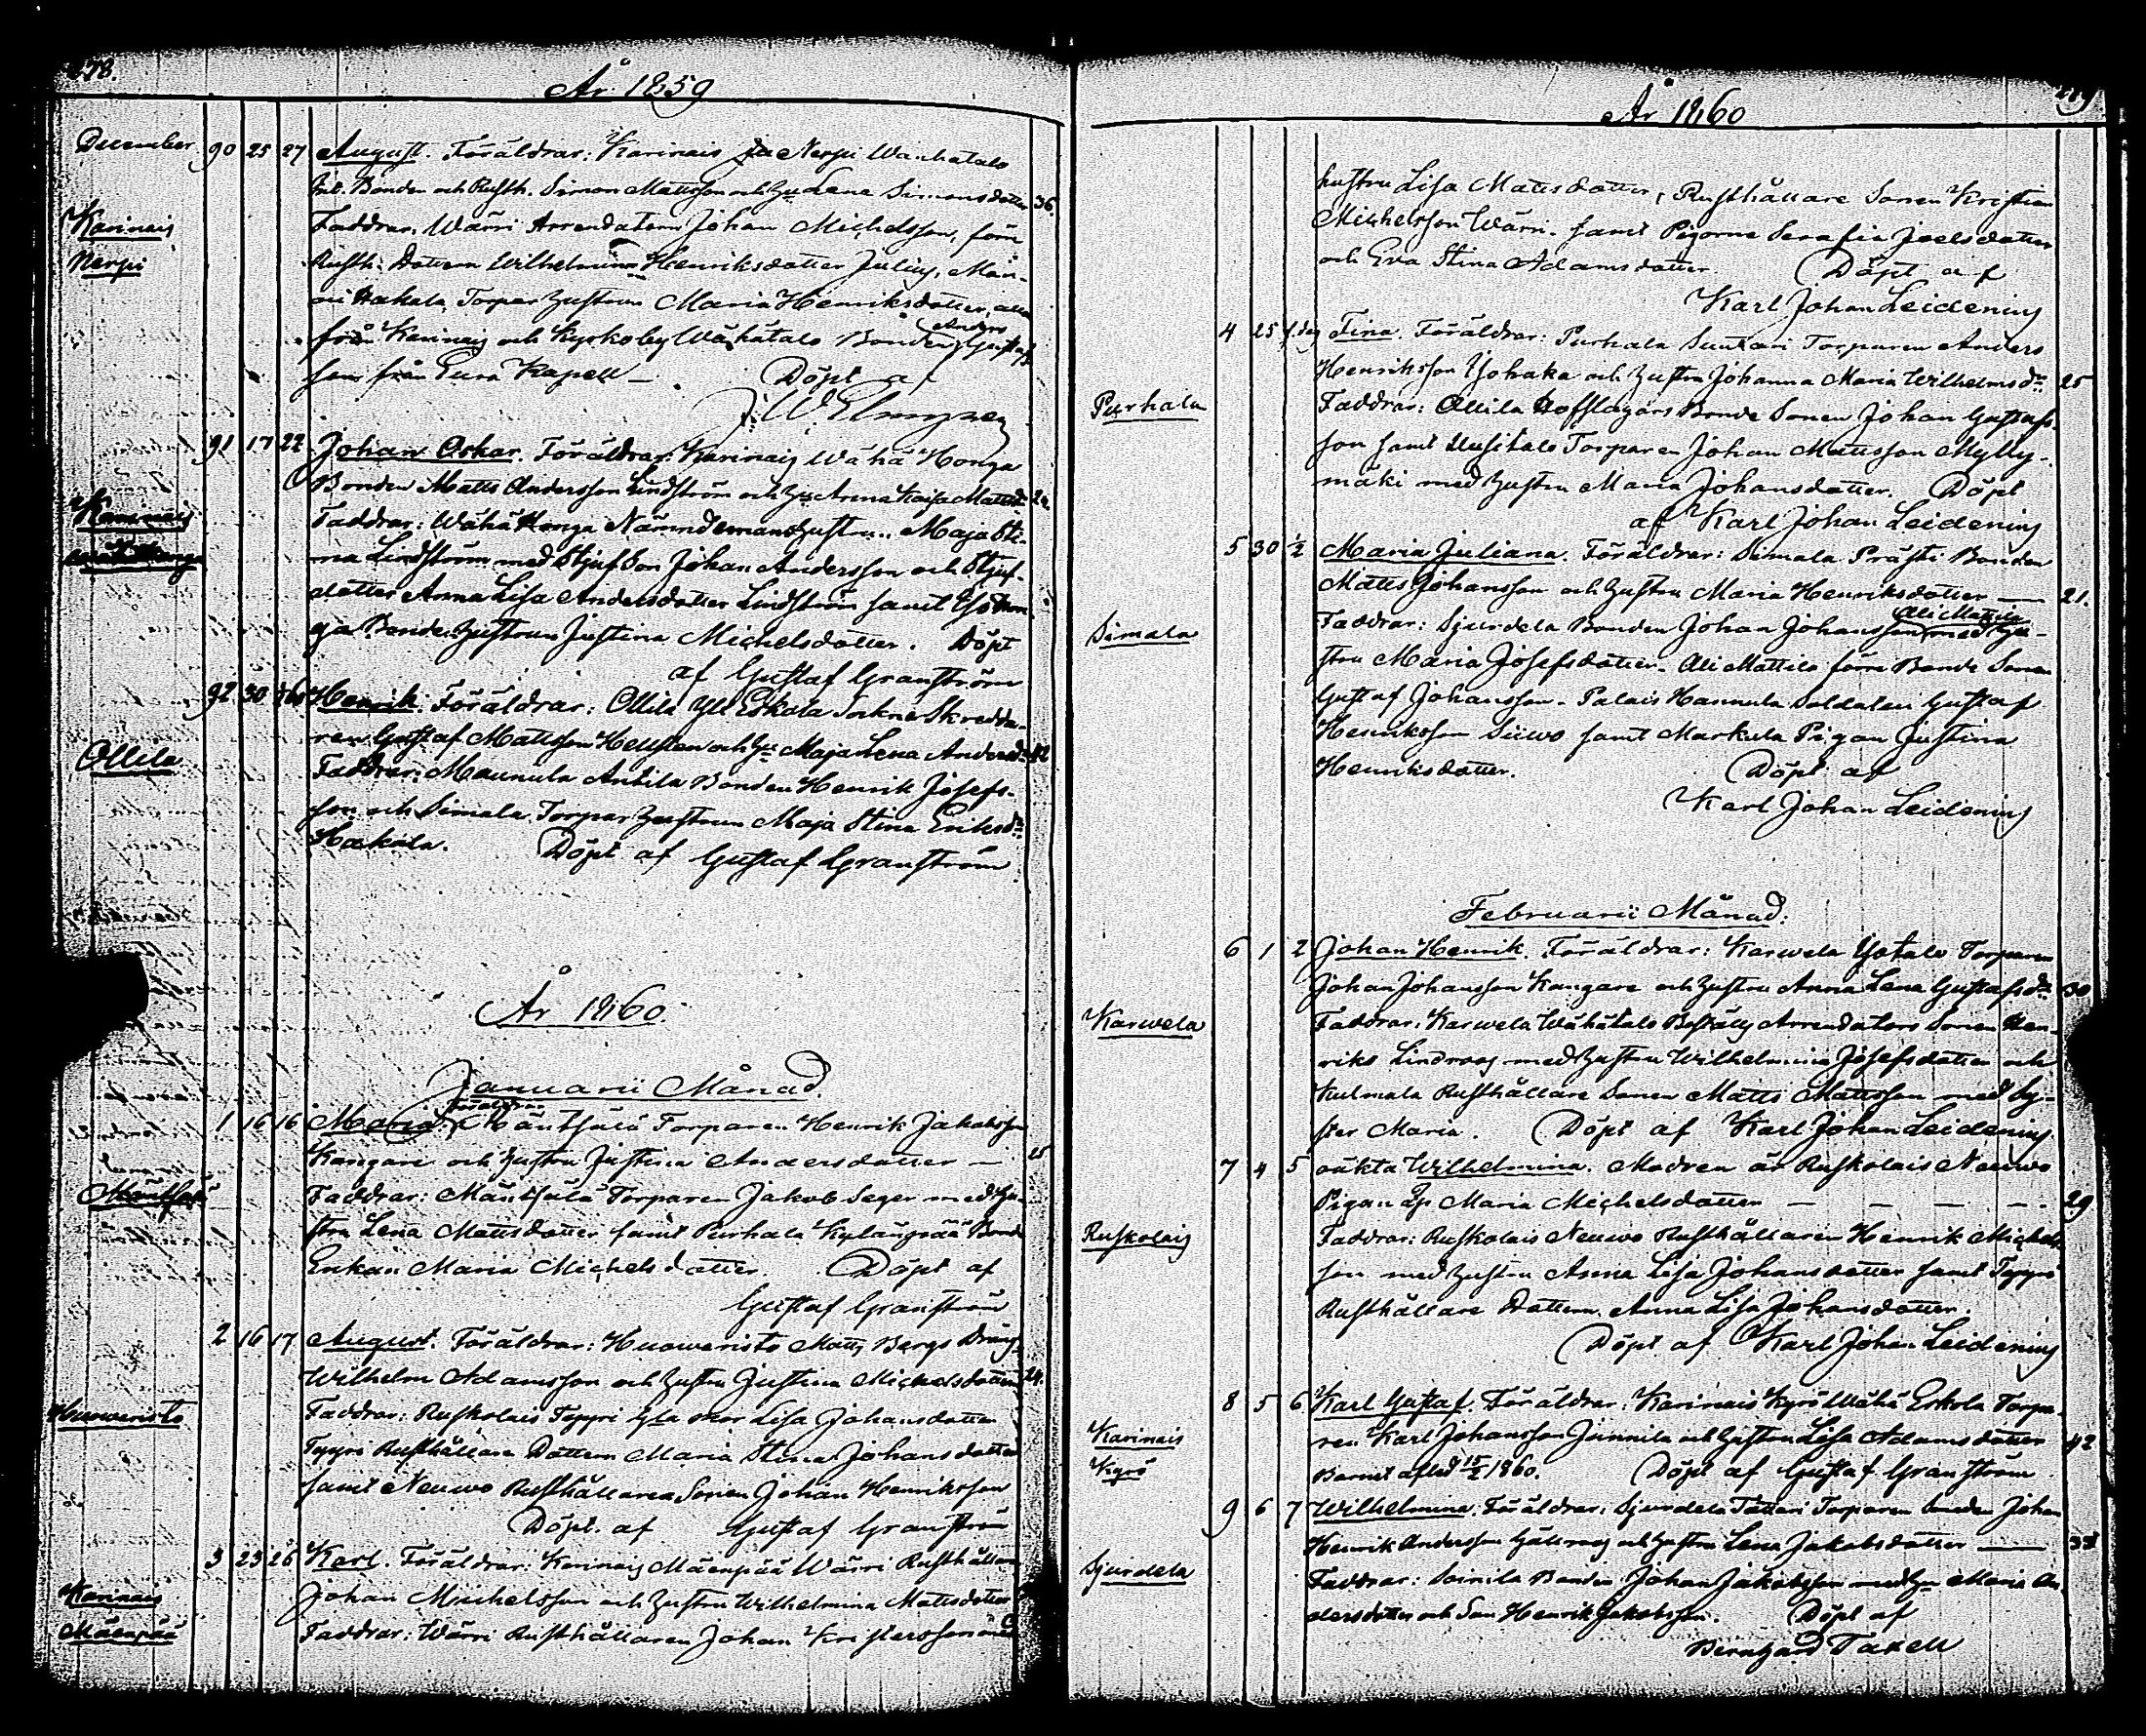 278.
År 1859
December 90 25 27 August. Föräldrar: Karinais Nerpi Wanhatalo
Bonden och Rusth. Simon Mattsson och Hu Lena Simonsdotter 36.
Karinais Faddrar. Wärri Arrendatorn Johan Michelsson, förre
Nerpi Rusth: Dottern Wilhelmina Henriksdotter Julin, Mau-
Hakala, Torpar hustrun Maria Henriksdotter, alla
från Karinais och Kyrkoby Wähätalo Bonden Anders Gustafs
son från Eura Kapell — Döpt af
91 17 22 Johan Oskar. Föräldrar: Karinais Wähä Honga
Bonden Matts Andersson Lindström och Hu Anna Kaisa Mattsdr
Karinais Faddrar: Wähä Honga Nämndemans Hustrun Maja Sti-
na Lindström med Stjuf Son Johan Andersson och Stjuf-
dotter Anna Lisa Andersdotter Lindström samt Iso Hon
ga Bonde Hustrun Justina Michelsdotter. Döpt
af Gustaf Granström
92 30 Henrik. Föräldrar: Ollila Yli Eskola Sockne Skredda-
ren Gustaf Mattsson Hellsten och Hu Maja Lena Andersdr 42
Ollila Faddrar: Maunula Antila Bonden Henrik Josefs-
son och Simala Torpar hustrun Maja Stina Eriksdr
Hakala. Döpt af Gustaf Granström
År 1860.
Januarii Månad.
1 16 16 Maria. Föräldrar Mäntsälä Torparen Henrik Jakobsson
Kangare och hustru Justina Andersdotter — 25
Mäntsälä Faddrar: Mäntsälä Torparen Jakob Seger med hu-
stru Lena Mattsdotter samt Purhala Kylänpää Bonde
Enkan Maria Michelsdotter. Döpt af
Gustaf Granström
2 16 17 August. Föräldrar: Huoweristo Matts Bergs Dräng
Wilhelm Adamsson och hustru Justina Michelsdotter 24.
Huoweristo Faddrar: Ruskolais Tyyri Lisa Johansdotter
Tyyri Rusthållare Dottern Maria Stina Johansdotter
samt Neuwo Rusthållare Sonen Johan Henriksson
Döpt af Gustaf Granström
3 23 26 Karl. Föräldrar: Karinais Mäenpää Wärri Rusthållaren
Karinais Johan Michelsson och hustru Wilhelmina Mattsdotter
Mäenpää Faddrar: Wärri Rusthållaren Johan Kristersson med
År 1860
hustru Lisa Mattsdotter, Rusthållare Sonen Kristian
Michelsson Wärri. samt Pigorna Serafia Joelsdotter
och Eva Stina Adamsdotter. Döpt af
Karl Johan Leidenius
4 25 s. dag Fina. Föräldrar: Purhala Suutari Torparen Anders
Henriksson Isohaka och hustru Johanna Maria Wilhelmsdr 25
Purhala Faddrar: Ollila Hofslagars Bonde Sonen Johan Gustafs-
son samt Uusitalo Torparen Johan Mattsson Mylly-
mäki med hustru Maria Johansdotter. Döpt
af Karl Johan Leidenius
5 30 ½ Maria Juliana. Föräldrar: Simala Prästi Bonden
Matts Johansson och hustru Maria Henriksdotter — 21.
Simala Faddrar: Djurdela Bonden Johan Johansson med hu-
stru Maria Josefsdotter. Ali Mattila förre Bonde Sonen
Gustaf Johansson. Palais Hannula Soldaten Gustaf
Henriksson Siiwo samt Markula Pigan Justina
Henriksdotter. Döpt af
Karl Johan Leidenius
Februarii Månad.
6 1 2 Johan Henrik. Föräldrar: Karwela Ylotalo Torparen
Johan Johansson Kangare och hustru Anna Lena Gustafsdr 30
Karwela Faddrar: Karwela Wähätalo Boställs Arrendators Sonen Hen-
rik Lindroos med hustru Wilhelmina Josefsdotter och
Kulmala Rusthållare Sonen Matts Mattsson med Sy-
ster Maria. Döpt af Karl Johan Leidenius
7 4 5 oäkta Wilhelmina. Modren är Ruskolais Neuwo
Pigan Maria Michelsdotter — — — — 29
Ruskolais Faddrar: Ruskolais Neuwo Rusthållaren Henrik Michels-
son med hustru Anna Lisa Johansdotter samt Tyyri
Rusthållare Dottern Anna Lisa Johansdotter.
Döpt af Karl Johan Leidenius
8 5 6 Karl Gustaf. Föräldrar: Karinais Kyrö Wähä Eskola Torpa-
Karinais ren Karl Johansson Junnila och hustru Lisa Adamsdotter 42
Kyrö Barnet aflid 15/2 1860. Döpt af Gustaf Granström
9 6 7 Wilhelmina. Föräldrar: Djurdela Tattari Torparen Johan
Henrik Andersson och hustru Lena Jakobsdotter —
Djurdela Faddrar: Soinila Bonden Johan Jakobsson med hu Maria An-
dersdotter och Son Henrik Jakobsson. Döpt af
Bernhard Taxell